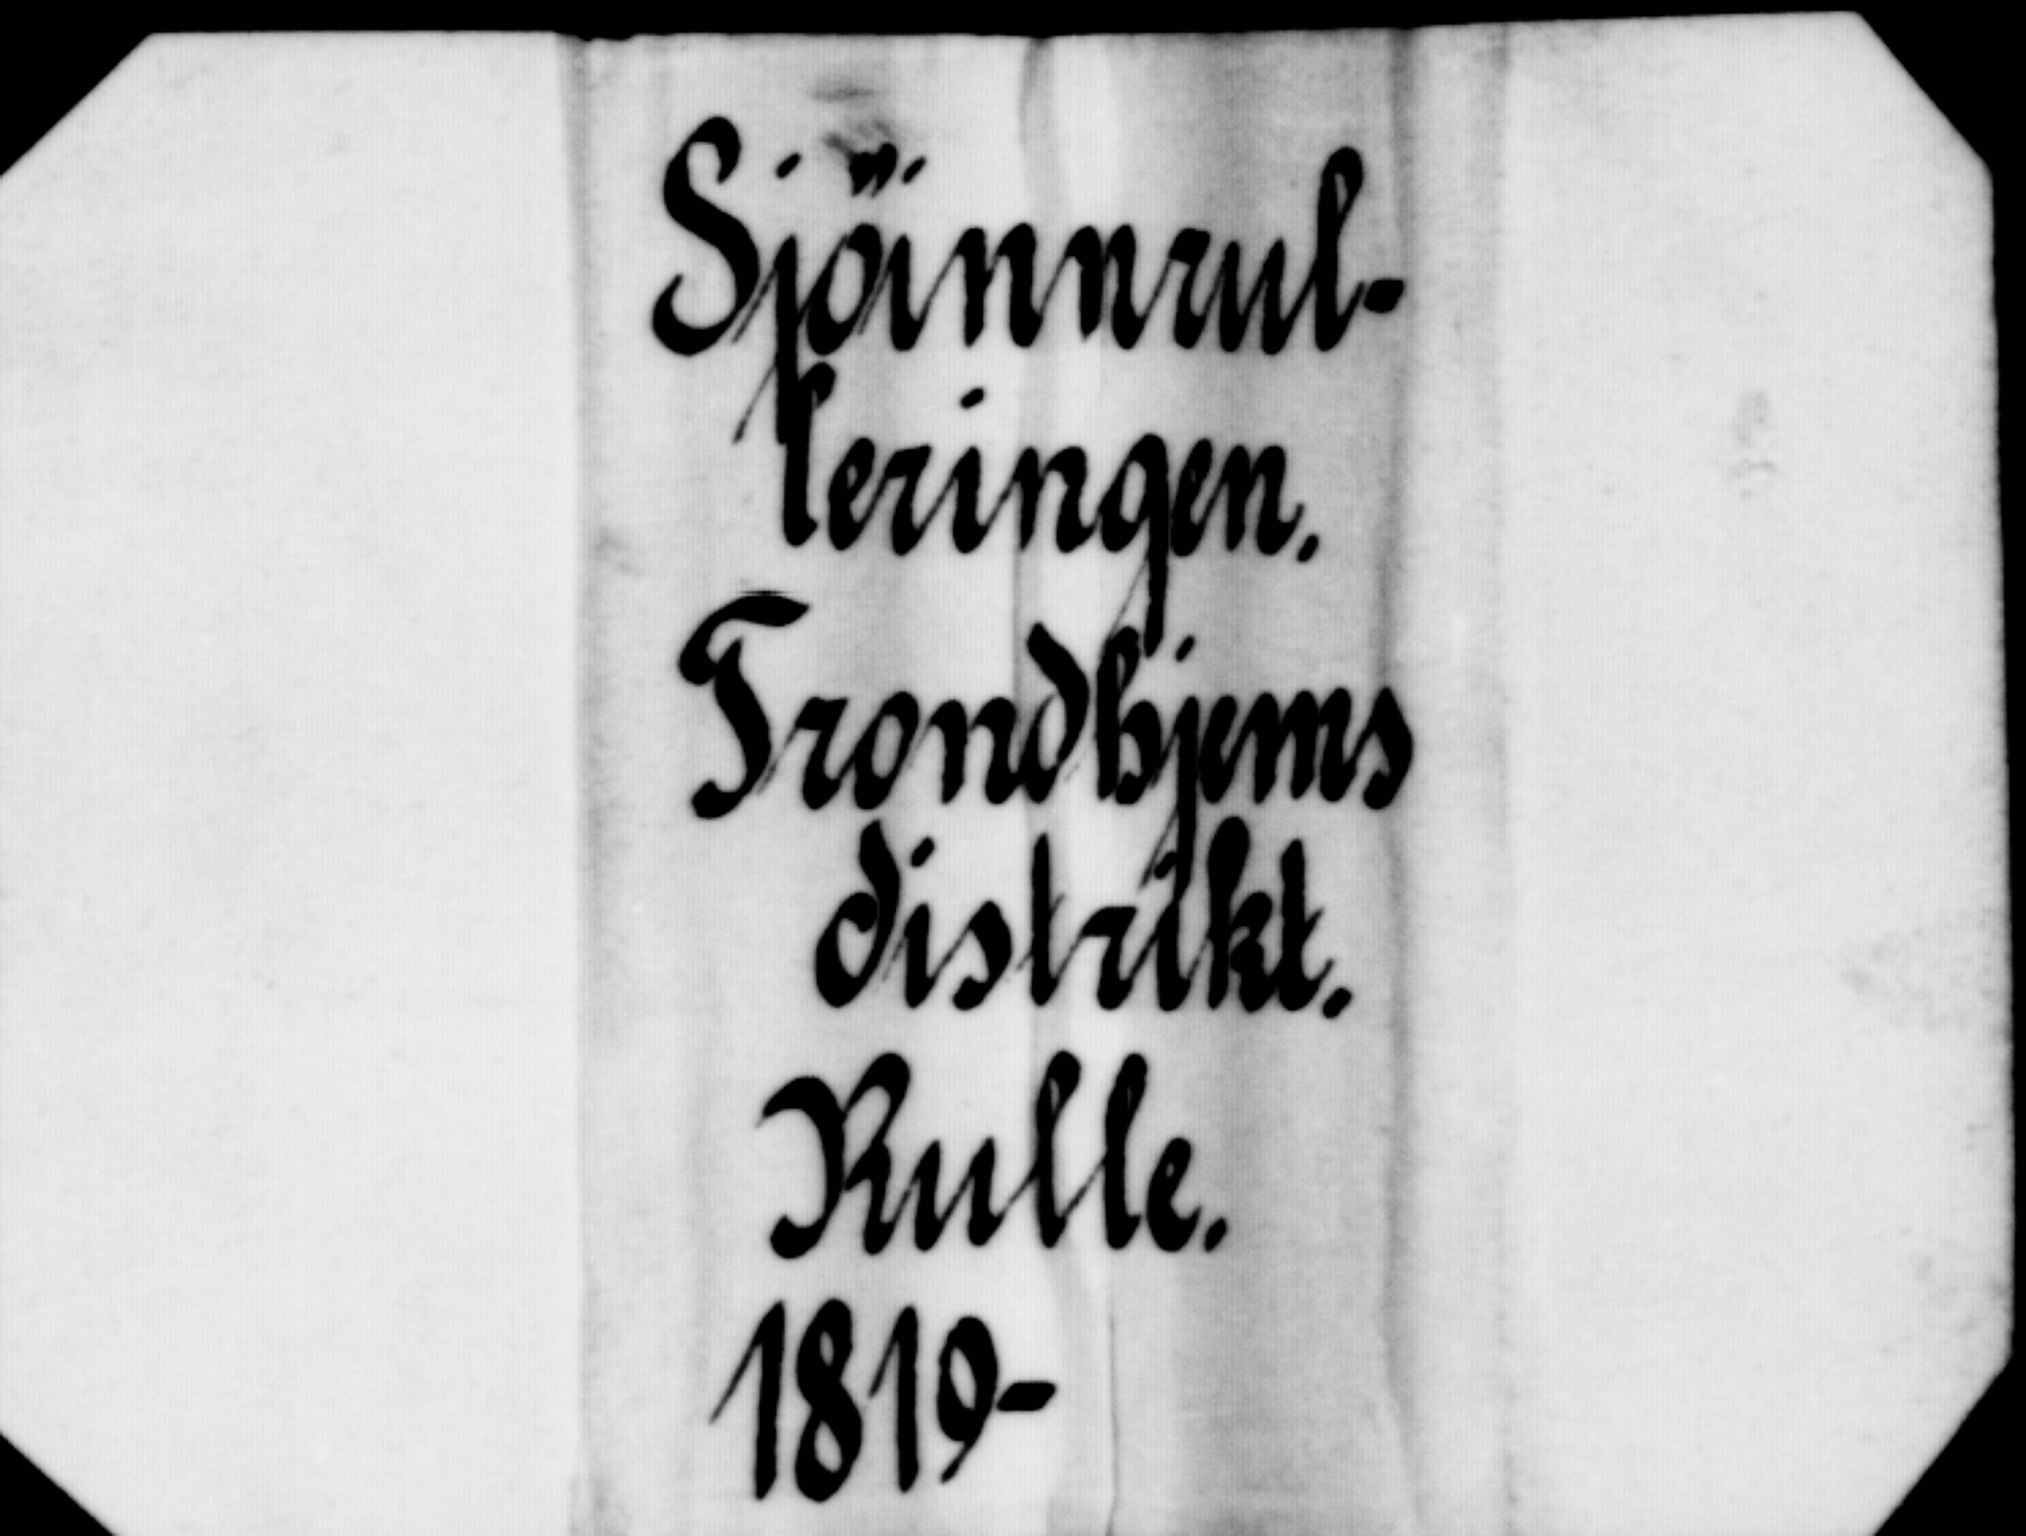 Sjöinnrul-
leringen.
Trondhjems
distrikt.
Rulle.
1819-